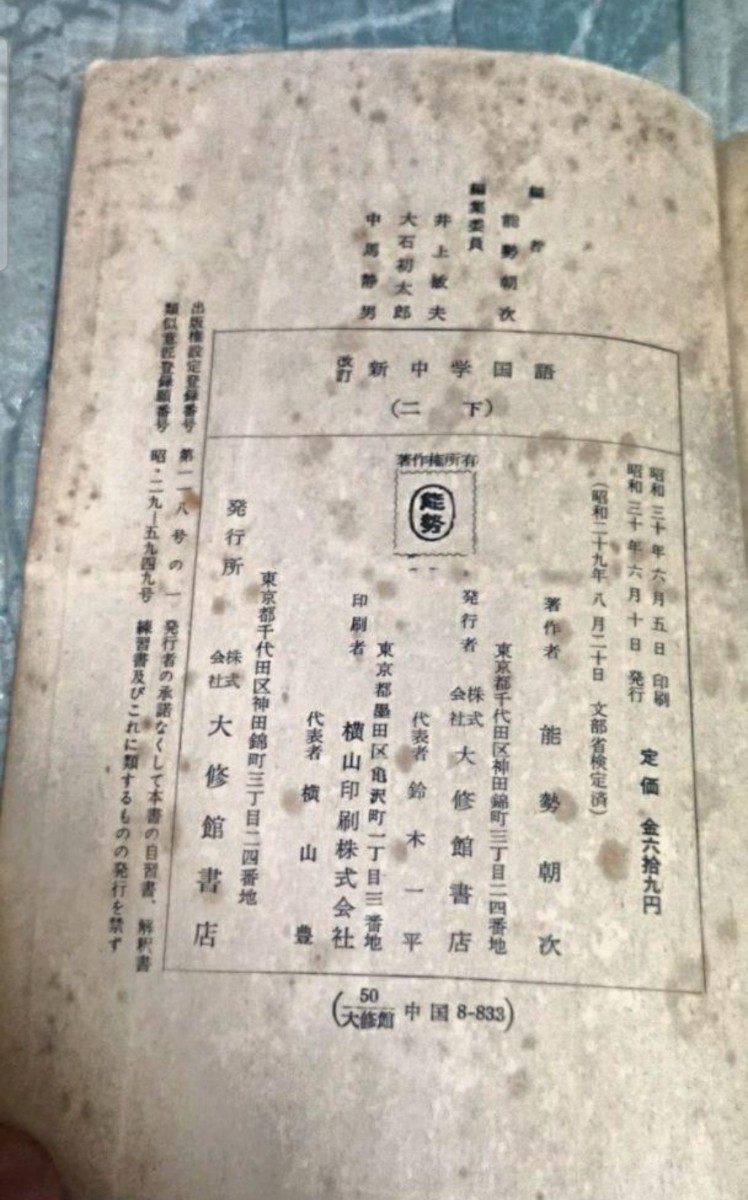 編者
能勢朝次
編集委員
井上敏夫
大石初太郎
中馬静男
改訂 新中学国語
(二下)
昭和三十年六月五日 印刷
昭和三十年六月十日 発行
定価 金六拾九円
(昭和二十九年八月二十日 文部省検定済)
著作権所有
能勢
著作者 能勢朝次
東京都千代田区神田錦町三丁目二四番地
発行者 株式会社 大修館書店
代表者 鈴木一平
東京都墨田区亀沢町一丁目三番地
印刷者 横山印刷株式会社
代表者 横山豊
東京都千代田区神田錦町三丁目二四番地
発行所 株式会社 大修館書店
出版権設定登録番号 第一一八号の一
類似意匠登録願番号 昭・二九—五九四九号
発行者の承諾なくして本書の自習書、解釈書
練習書及びこれに類するものの発行を禁ず
(50/大修館 中国8-833)